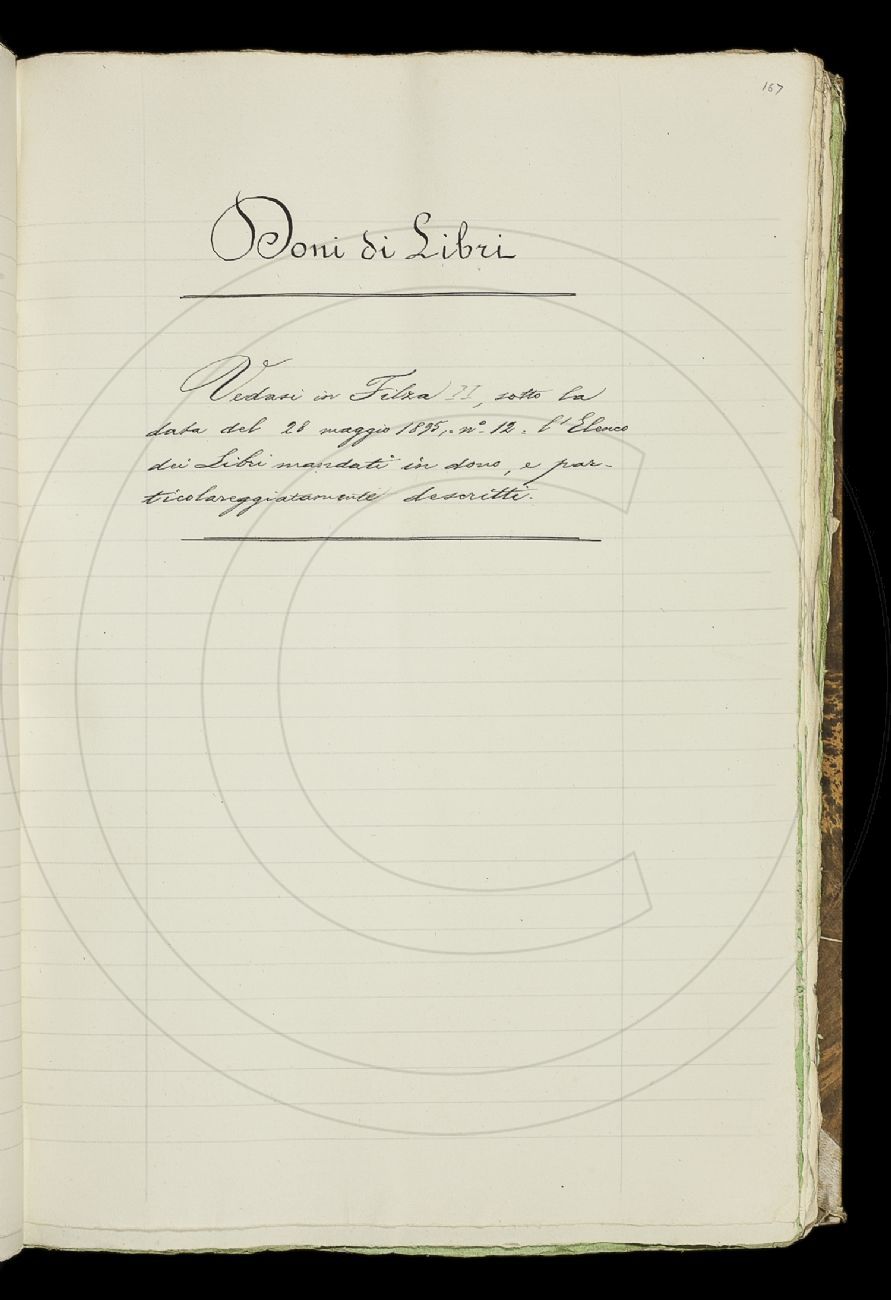 167
Doni di Libri
Vedasi in Filza II, sotto la
data del 28 maggio 1895, nº 12. l'Elenco
dei Libri mandati in dono, e par-
ticolareggiatamente descritti.